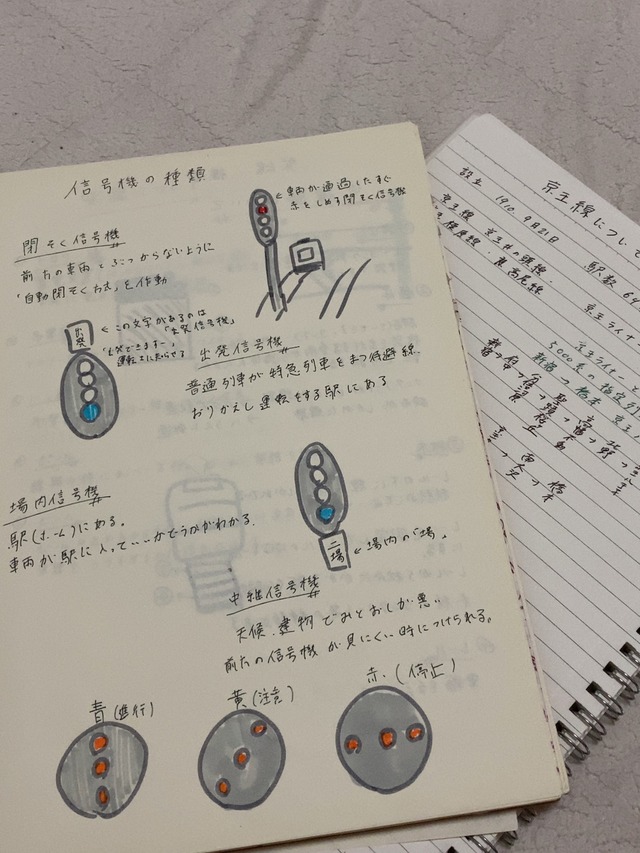 信号機の種類
閉そく信号機
前方の車両とぶつからないように
「自動閉そく方式」を作動
←車両が通過したすぐ
赤をしめす閉そく信号機
出発
←この文字があるのは
「出発信号機」
「出発できますー」
運転士に知らせる
出発信号機
普通列車が特急列車をまつ待避線
おりかえし運転をする駅にある
場内信号機
駅(ホーム)にある。
車両が駅に入って‥‥かどうかがわかる。
二場
←場内の「場」
中継信号機
天候、建物でみとおしが悪い
前方の信号機が見にくい時につけられる。
青(進行)
黄(注意)
赤.(停止)
京王線について
設立 1910. 9月21日
京王線. 京王井の頭線.
高尾線
駅数 6
京王ライナー
5000系の指定列
新宿→橋本 京王